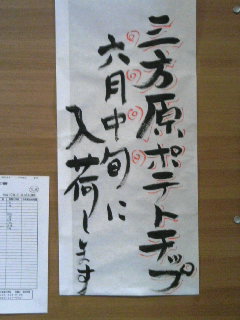 三方原ポテトチップ
六月中旬に
入荷します